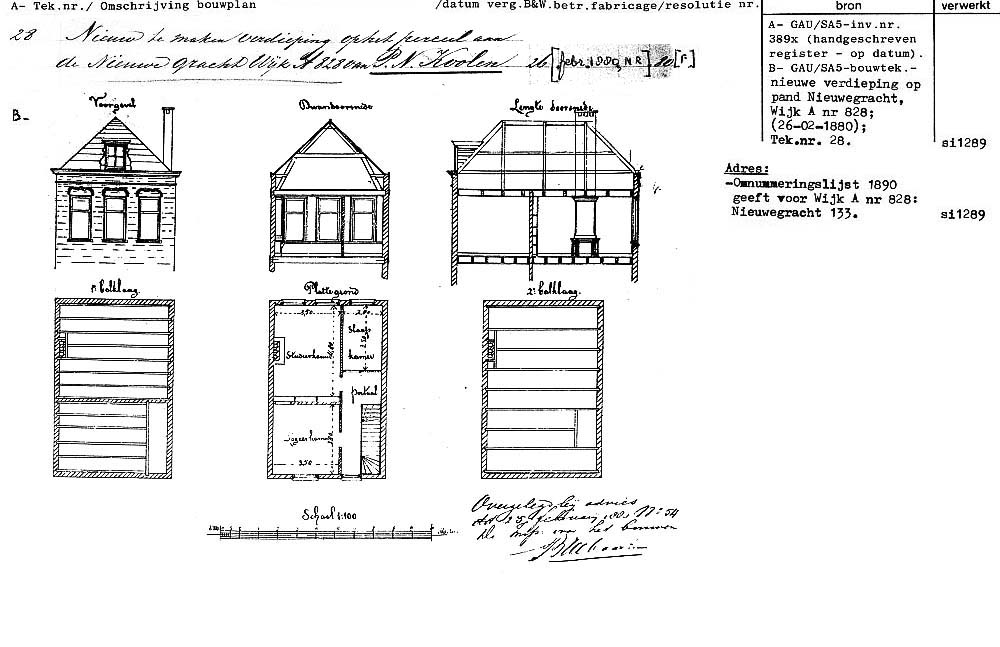 A- Tek.nr./ Omschrijving bouwplan /datum verg.B&W.betr.fabricage/resolutie nr.
bron
verwerkt
28 Nieuw te maken verdieping op het perceel aan
de Nieuwe gracht Wijk A 828 van P. N. Koolen 26 [febr. 1880, NR] 10 [F]
A- GAU/SA5-inv.nr.
389x (handgeschreven
register - op datum).
B- GAU/SA5-bouwtek.-
nieuwe verdieping op
pand Nieuwegracht,
Wijk A nr 828;
(26-02-1880);
Tek.nr. 28.
si1289
Adres:
-Omnummeringslijst 1890
geeft voor Wijk A nr 828:
Nieuwegracht 133.
si1289
B-
Voorgevel
Dwarsdoorsnede
Lengte doorsnede
1e balklaag.
Plattegrond
2e balklaag.
3,50
2,00
Studeerkamer
Slaap
kamer
portaal
Logeerkamer
3,50
Schaal 1:100
Overgelegd bij advies
februari
No 54
het bouwen